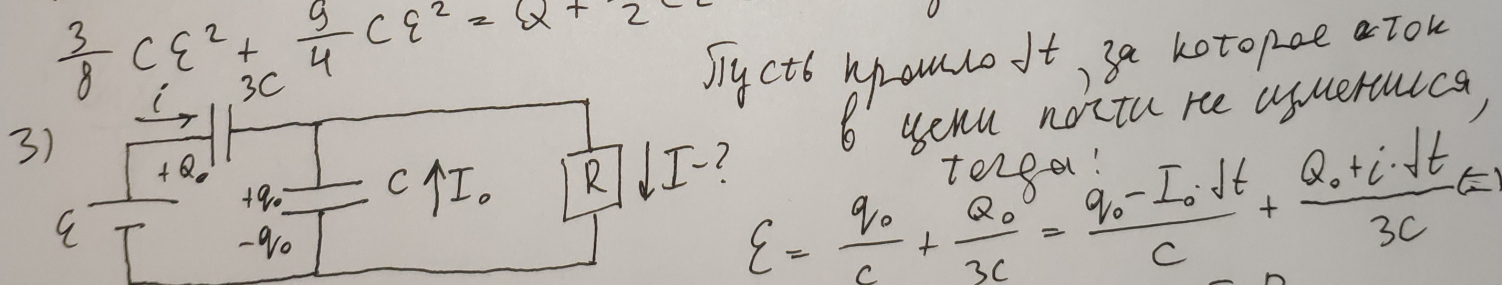 3/8 Cε² + 9/4 Cε² = Q +
3)
i
3C
+Q₀
ε
+q₀
-q₀
C ↑I₀
R ↓I-?
Пусть прошло dt, за которое ток
в цепи почти не изменился,
тогда:
ε = q₀/C + Q₀/3C = (q₀ - I₀·dt)/C + (Q₀ + i·dt)/3C (=)